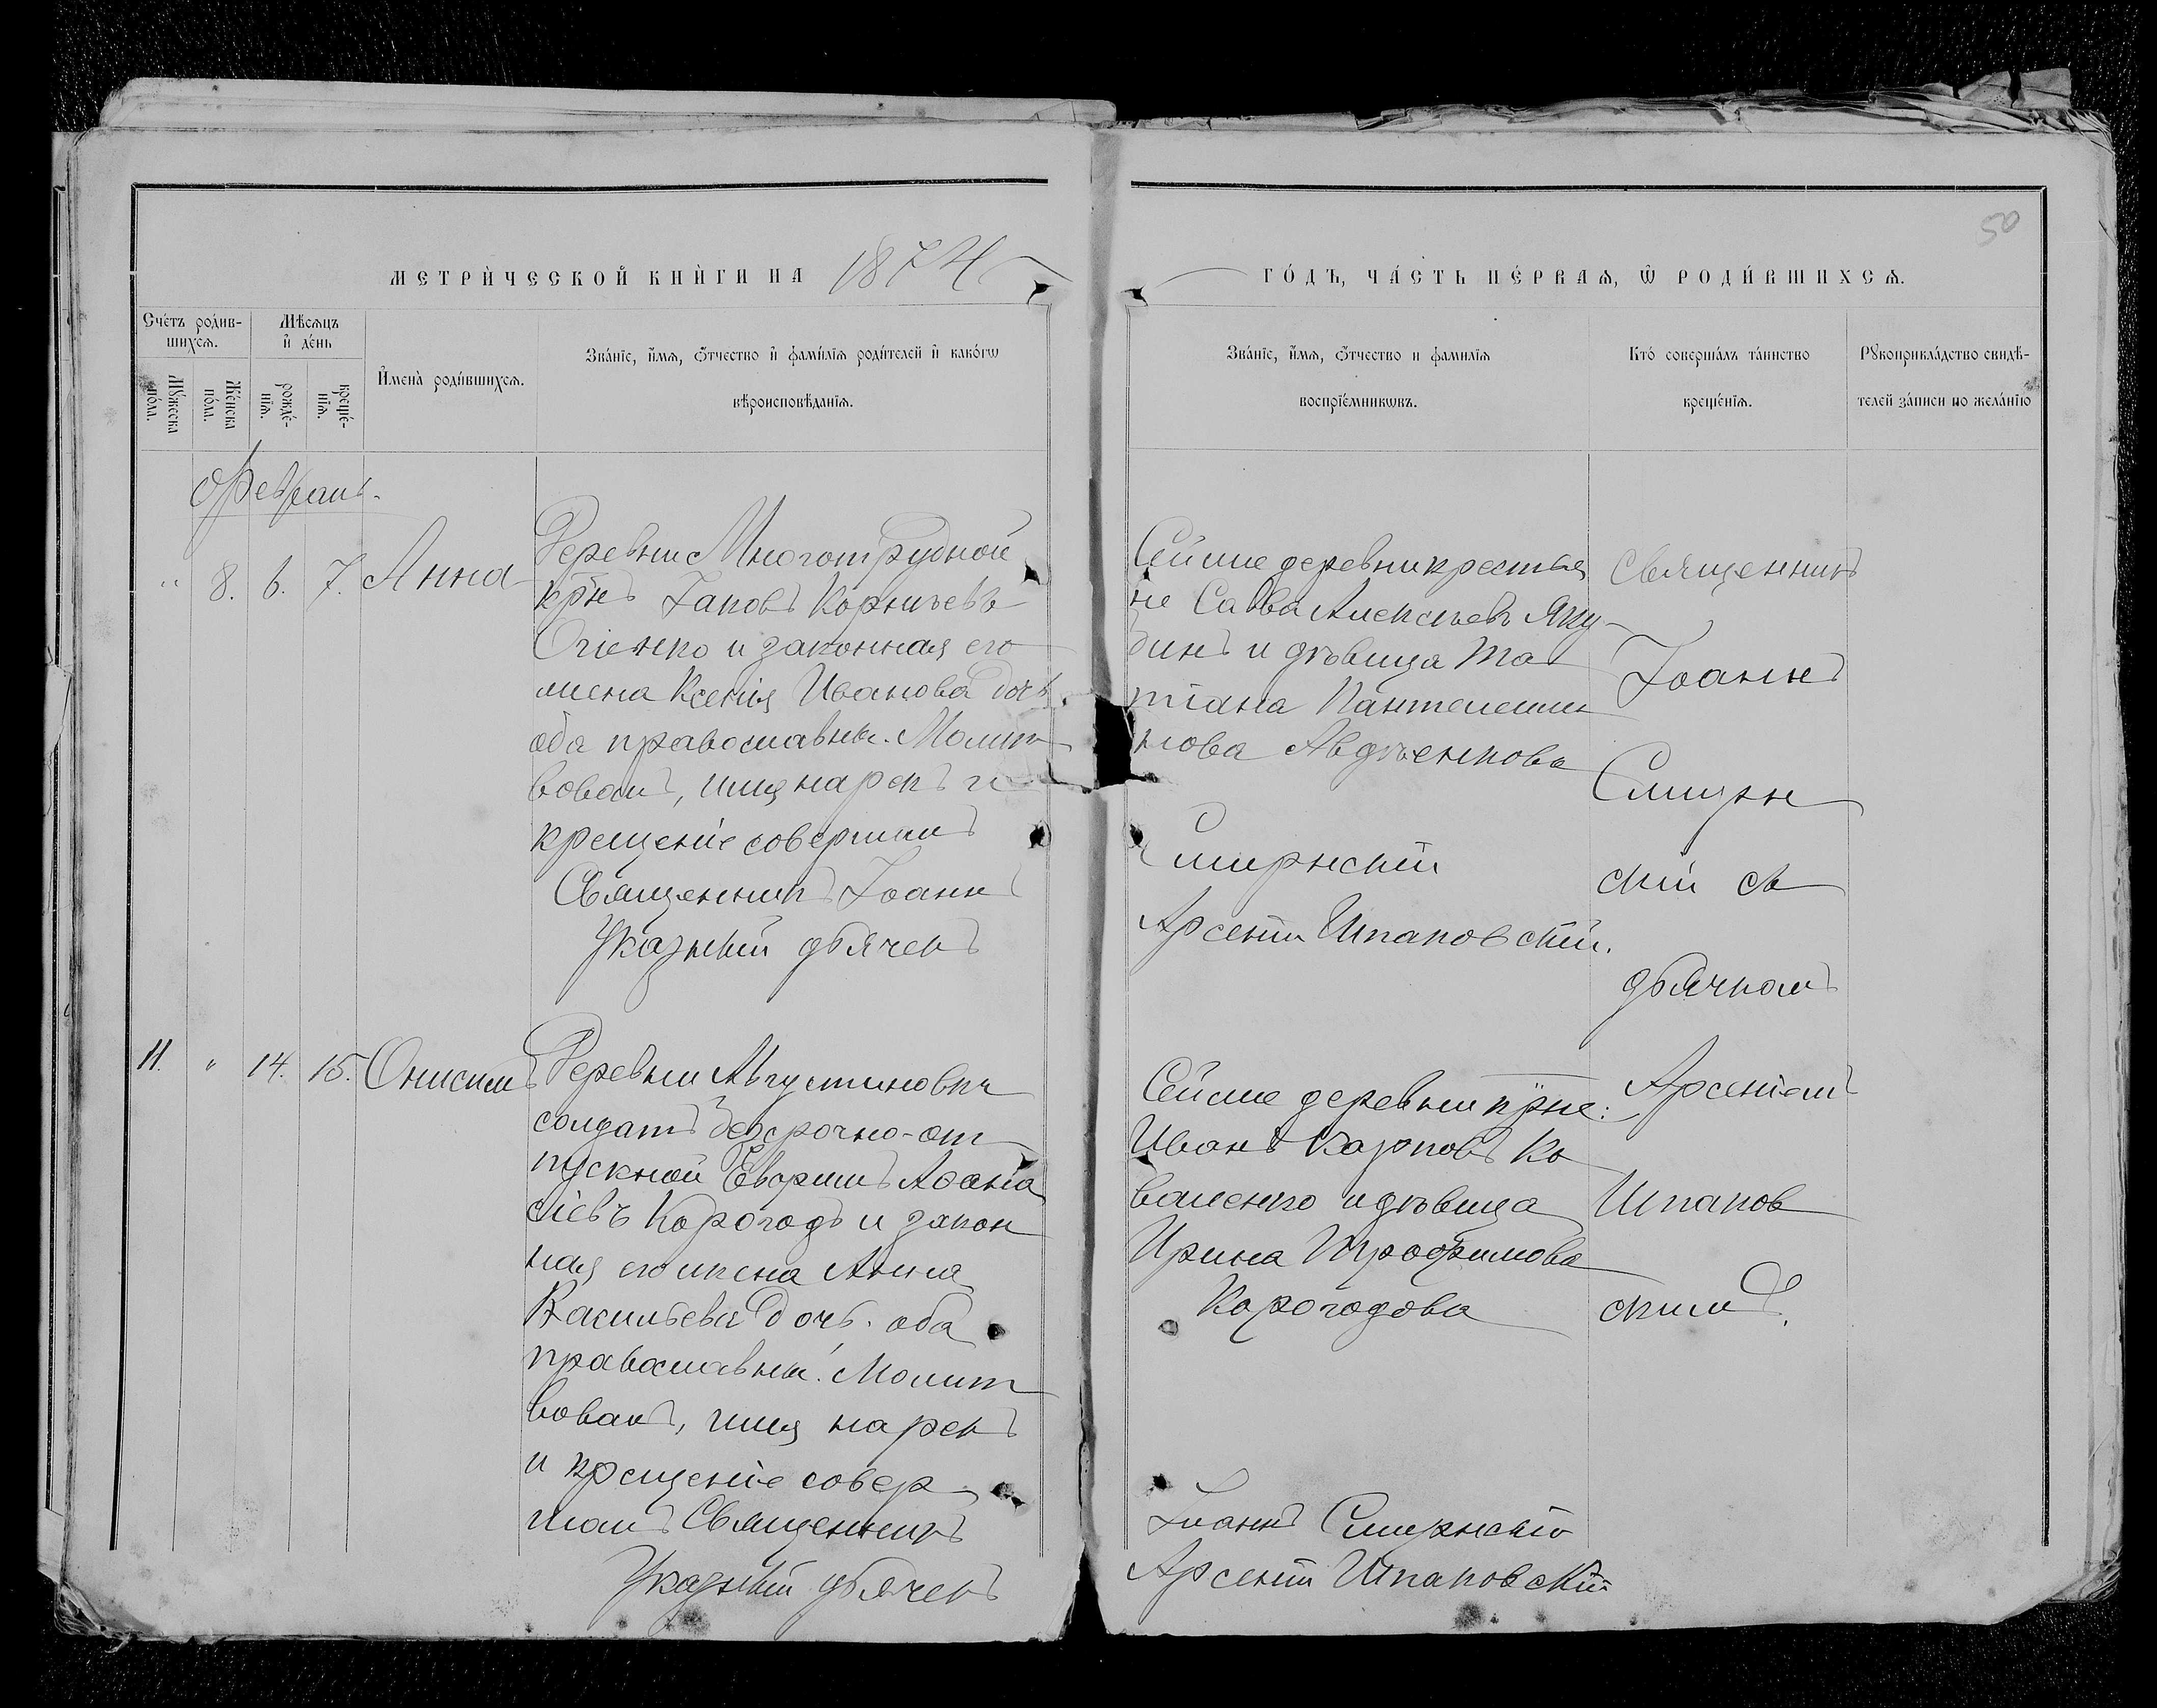 50
МЕТРИ́ЧЕСКОЙ КНИ́ГИ НА 1874
ГО́ДЪ, ЧА́СТЬ ПЕ́РВАѦ, Ѿ РОДИ́ВШИХСѦ.
Сче́тъ роди́в-
шихсѧ.
Мѣ́сѧцъ
и҆ де́нь
Мꙋ́жеска
по́ла.
Же́нска
по́ла.
рожде́-
нїѧ.
креще́-
нїѧ.
И҆мена̀ роди́вшихсѧ.
Зва́нїе, и҆́мѧ, ѻ҆́тчество и҆ фами́лїѧ роди́телей и҆ како́гѡ
вѣроисповѣ́данїѧ.
Зва́нїе, и҆́мѧ, ѻ҆́тчество и фамилїѧ
воспрїе́мникѡвъ.
Кто́ соверша́лъ та́инство
креще́нїѧ.
Рꙋкоприкла́дство свидѣ́-
телей за́писи по жела́нїю
Февраль.
" 8. 6. 7. Анна
Деревни Многотрудной
крнъ Іаковъ Корнѣевъ
Огіенко и законная его
жена Ксенія Иванова дочь.
оба православны. Молит
вовалъ, имя нарекъ и
крещеніе совершилъ
Священникъ Іоаннъ
Указный дьячекъ
Сей же деревни крестья
не Савва Алексѣевъ Яку
бинъ и дѣвица Та
тіана Пантелеимо
нова Авдѣенкова
Смирнскій
Арсеній Шпаковскій.
Священникъ
Іоаннъ
Смирн
скій съ
дьячкомъ
Арсеніемъ
Шпаков
скимъ.
11. " 14. 15. Онисимъ
Деревни Августиновки
солдатъ безсрочно-от
пускной Евфимъ Аѳана
сіевъ Корогодъ и закон
ная его жена Анна
Васильева дочь. оба
православны. Молит
вовалъ, имя нарекъ
и крещеніе совер
шалъ Священникъ
Указный дьячекъ
Сей же деревни крне:
Иванъ Карповъ Ко
валенко и дѣвица
Ирина Трофимова
Корогодова
Іоаннъ Смирнскій
Арсеній Шпаковскій